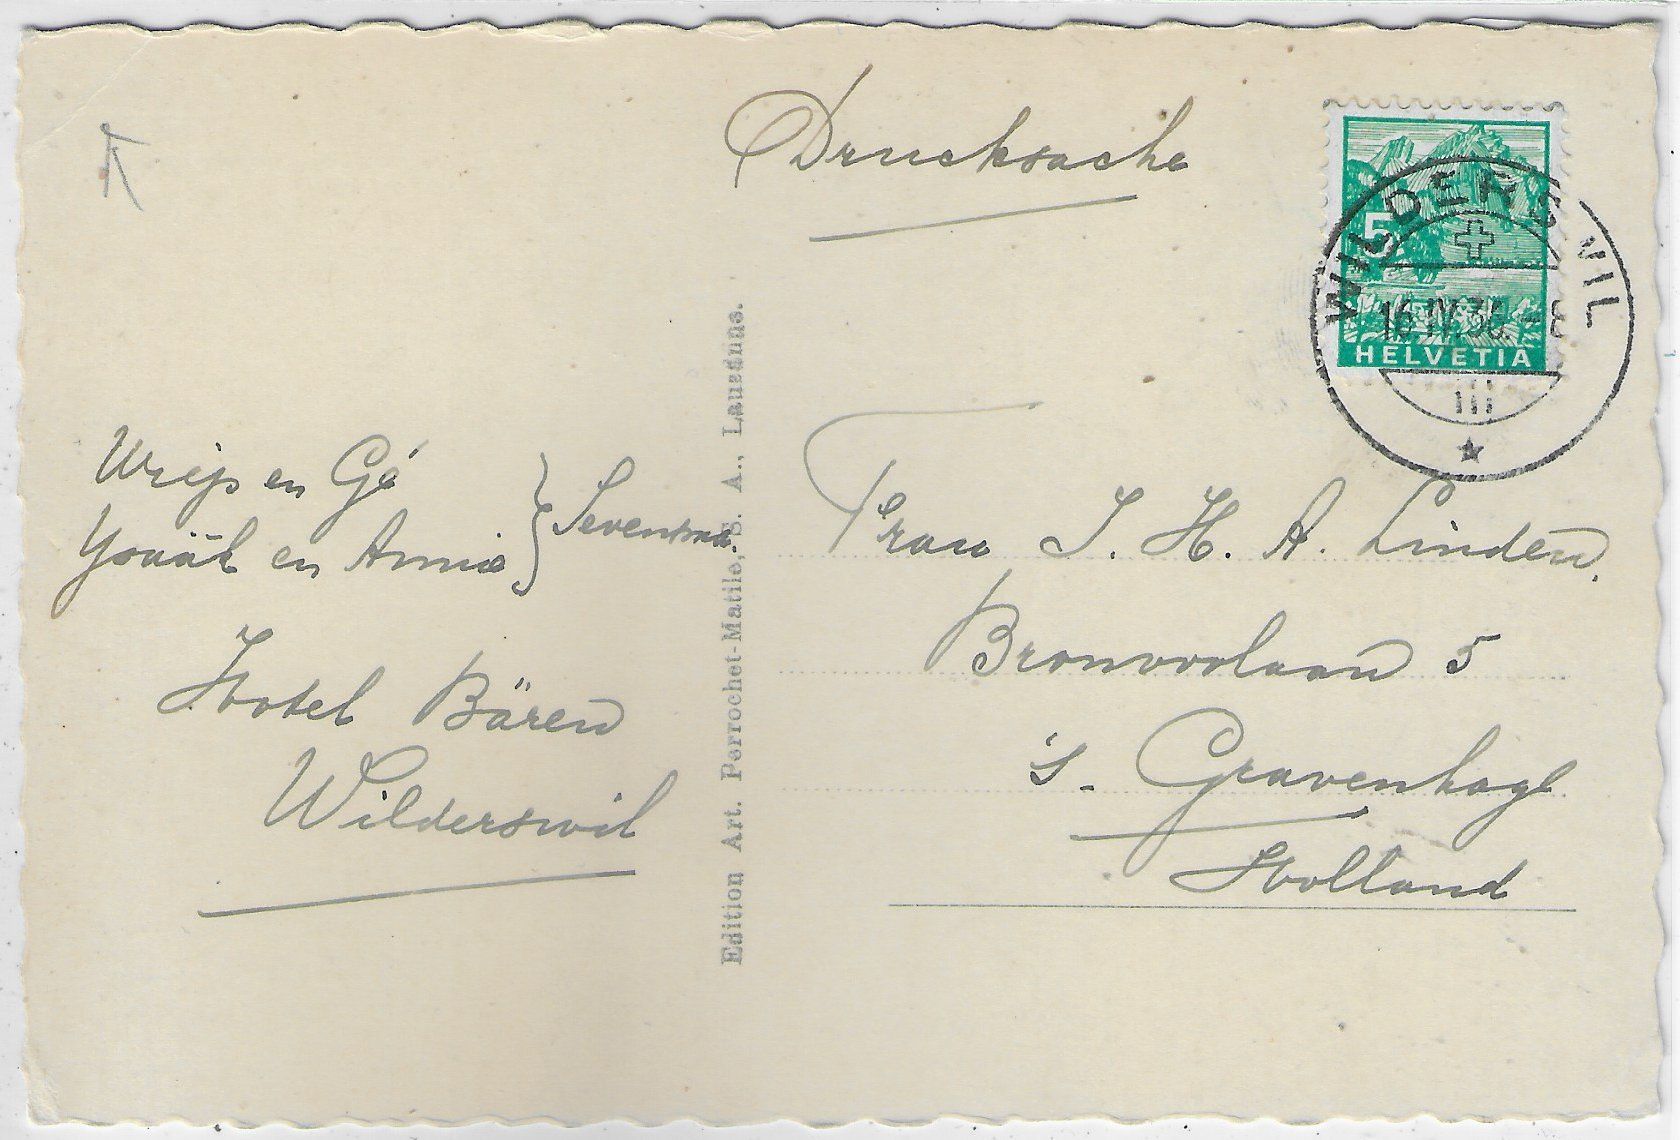 Drucksache
5
HELVETIA
WILDERSWIL
16.IV.36.-8
en Gé
en Annie
Hotel Bären
Wilderswil
Edition Art. Perrochet-Matile, S. A., Lausanne.
Frau J. H. A. Linden,
Bronovolaan 5
's-Gravenhage
Holland